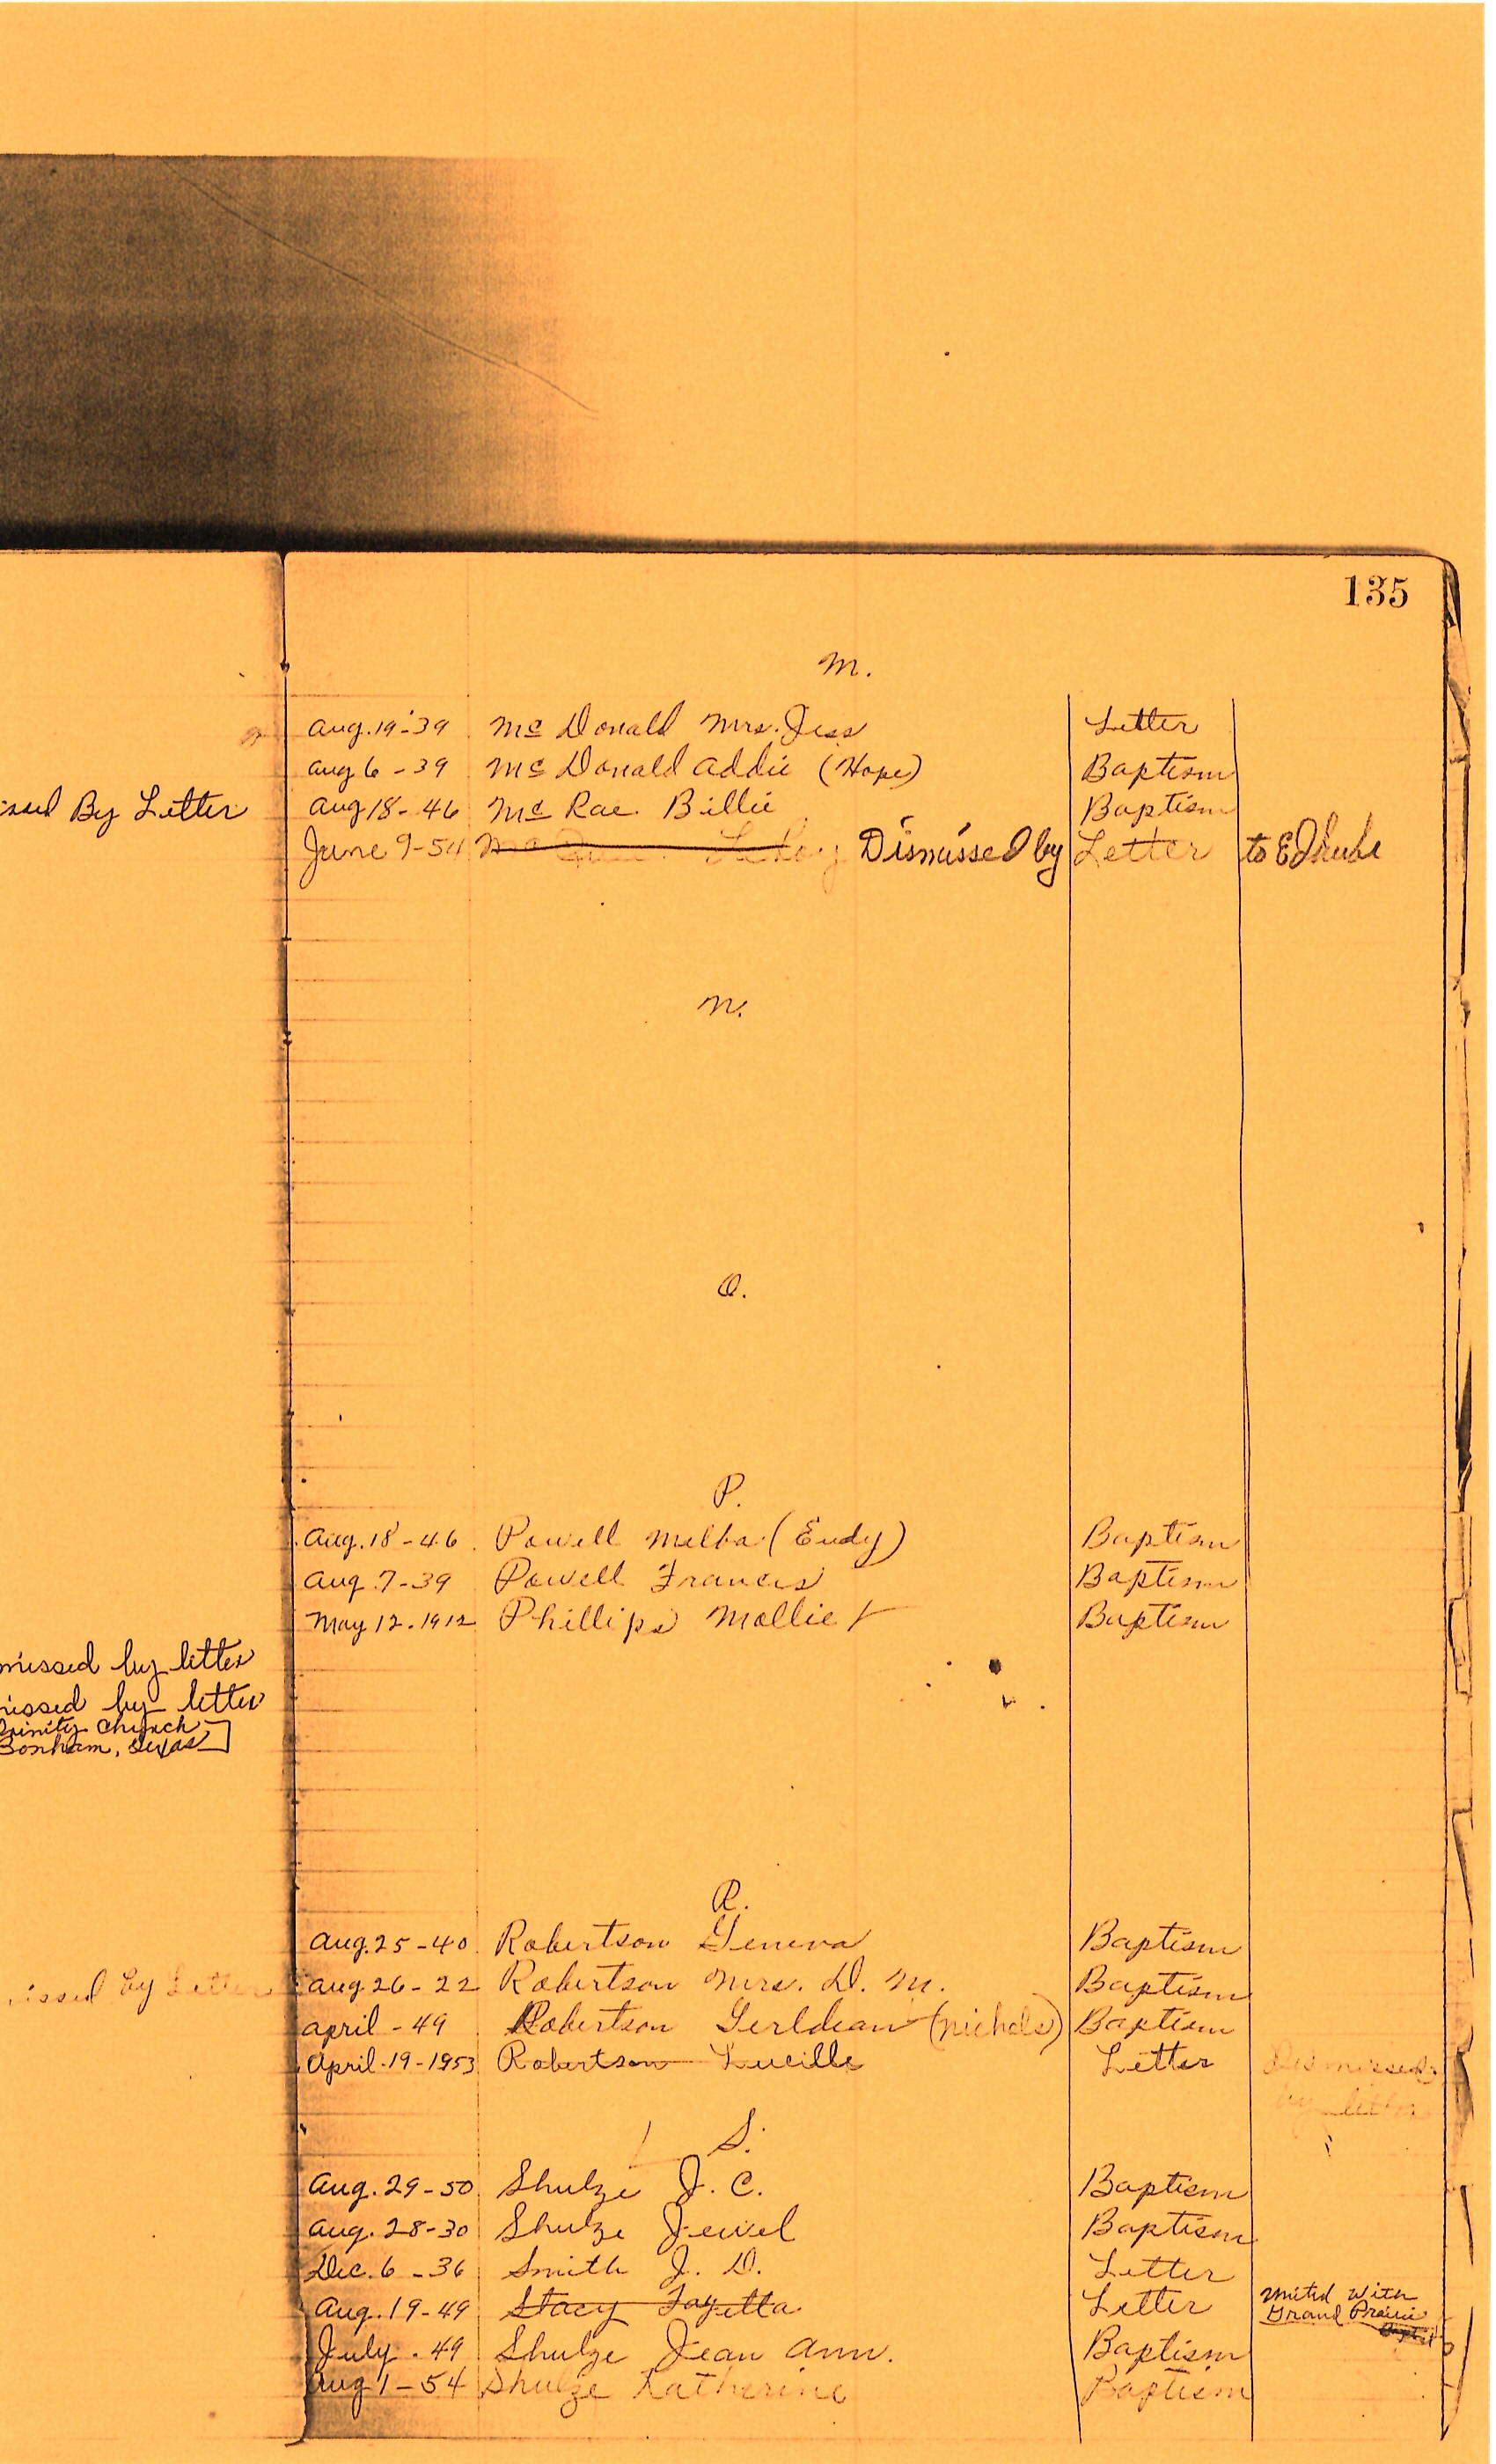 135
M.
Aug. 19-39 Mc Donald Mrs. Jess Letter
Aug 6-39 Mc Donald Addie (Hope) Baptism
ssed By Letter
Aug 18-46 Mc Rae Billie Baptism
June 9-54 Dismissed by Letter to Edhube
N.
O.
P.
Aug. 18-46 Powell Melba (Eudy) Baptism
Aug 7-39 Powell Francis Baptism
May 12-1912 Phillips Mollie Baptism
missed by letter
missed by letter
Trinity Church
Bonham, Texas
R.
Aug. 25-40 Robertson Geneva Baptism
issed by Letter
Aug 26-22 Robertson Mrs. D. M. Baptism
April-49 Robertson Gerldean (Nichols) Baptism
April-19-1953 Robertson Lucille Letter Dismissed
by letter
S.
Aug. 29-50 Shulze J. C. Baptism
Aug. 28-30 Shulze Jewel Baptism
Dec. 6-36 Smith J. D. Letter
Aug. 19-49 Stacy Fayetta Letter United With
Grand Prairie
Baptist
July. 49 Shulze Jean Ann. Baptism
Aug 1-54 Shulze Katherine Baptism